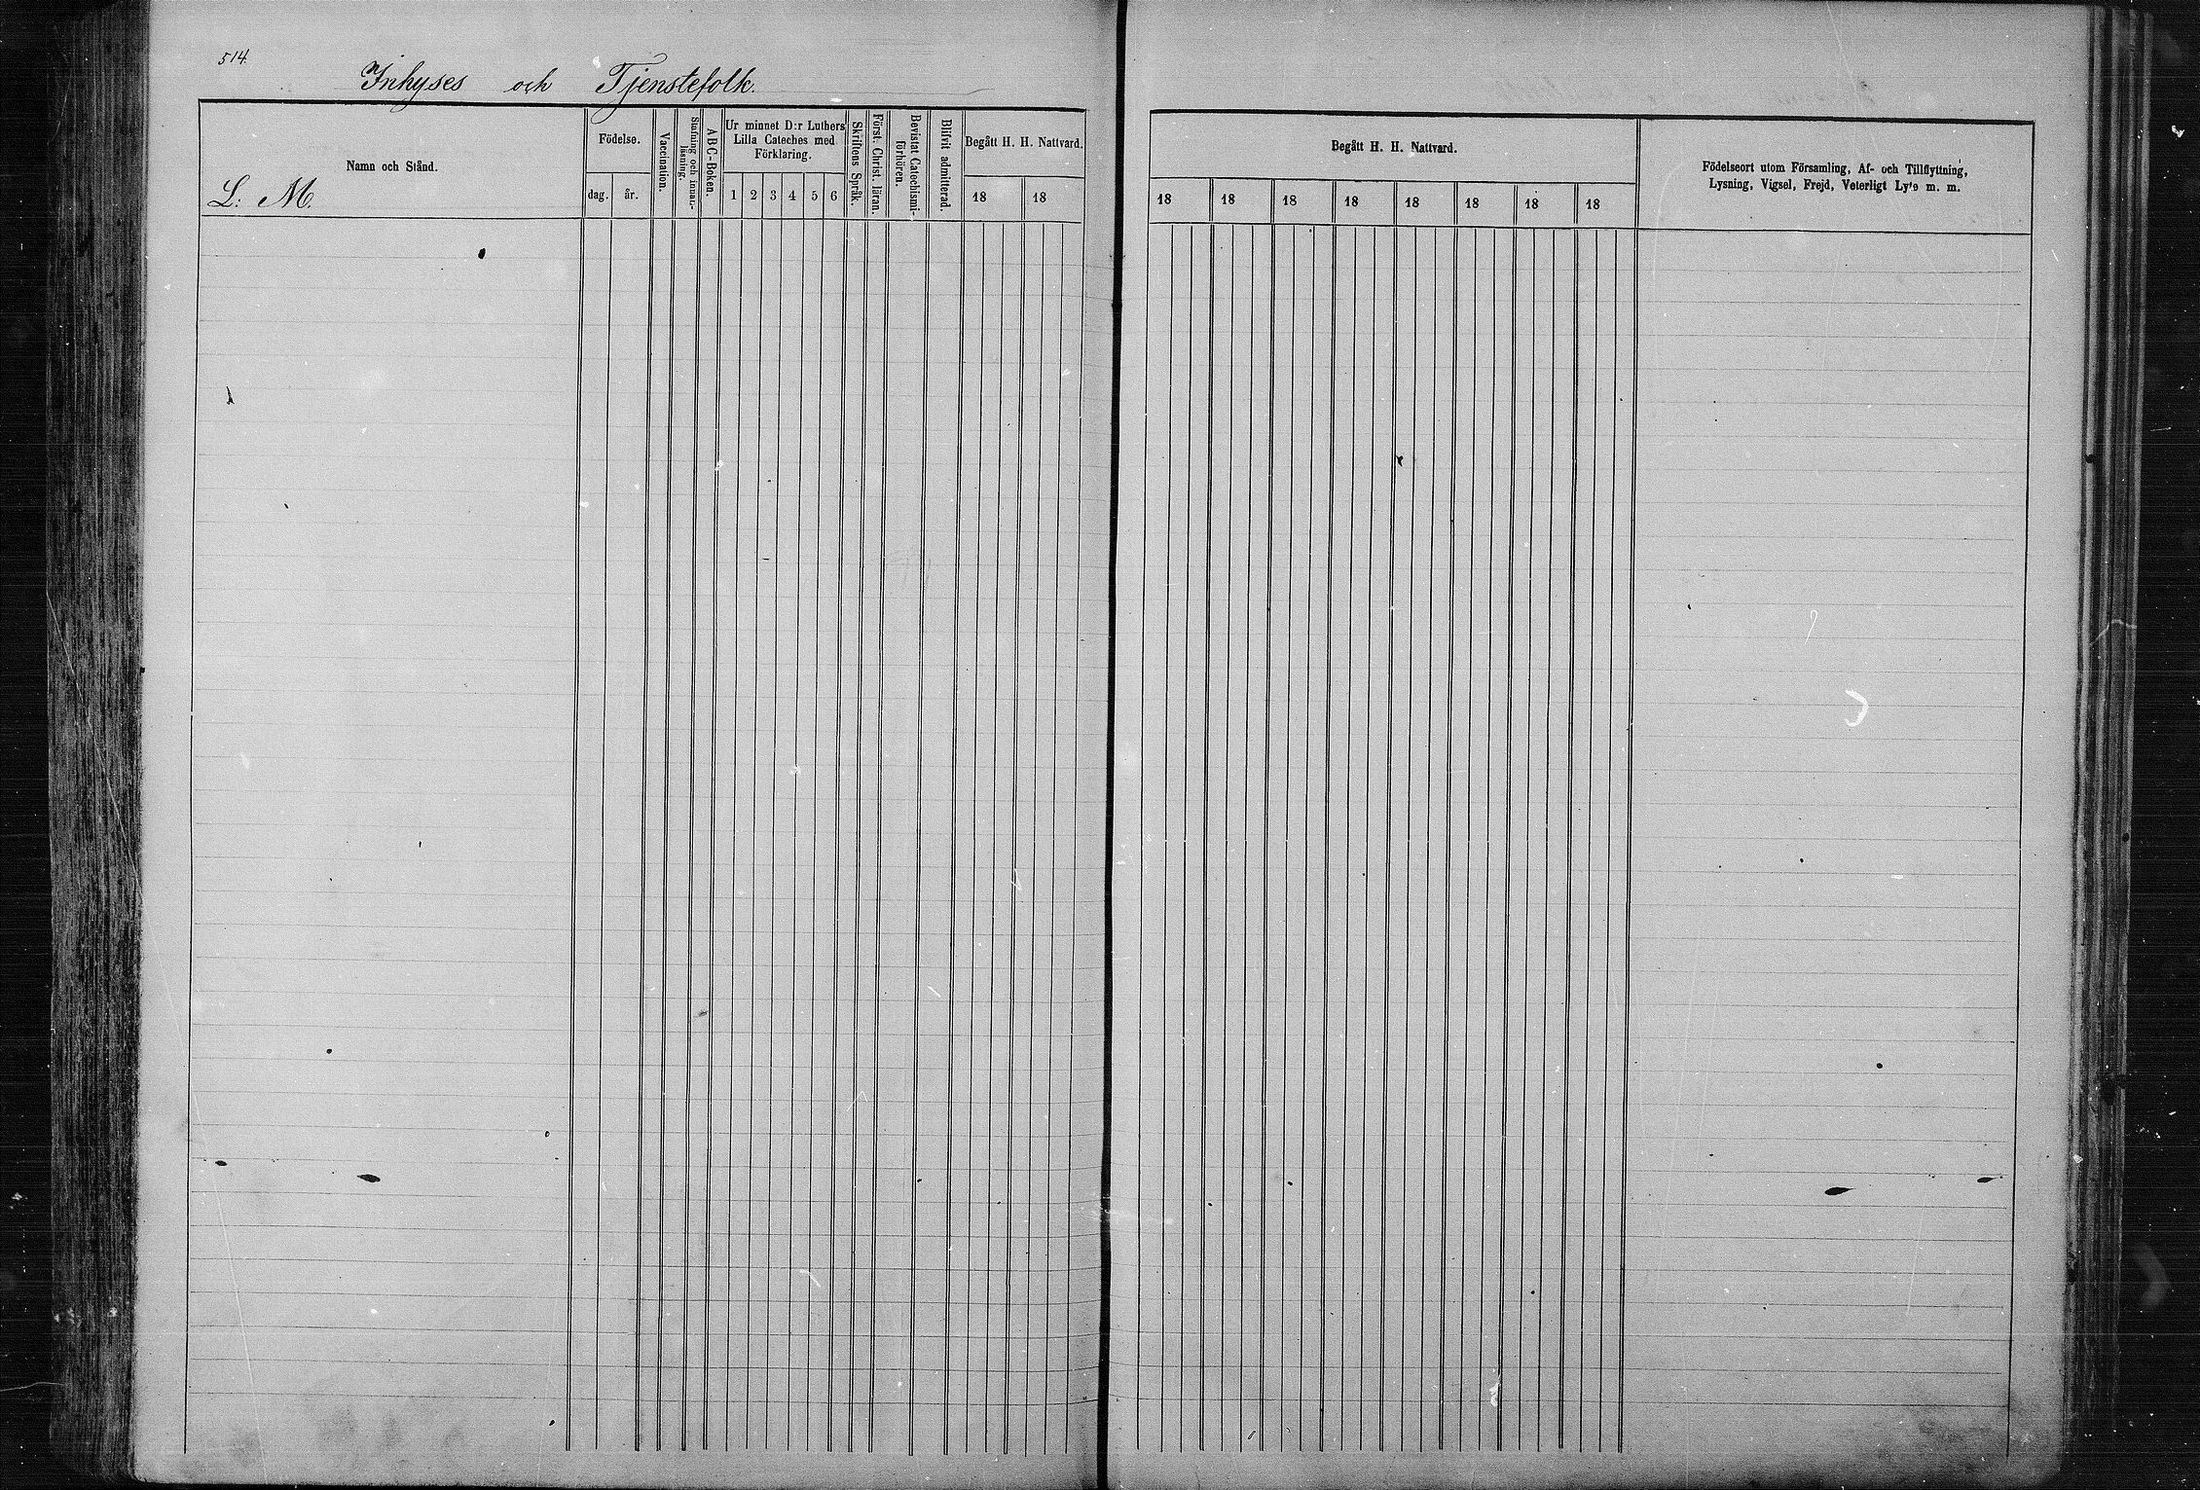 514.
Inhyses och Tjenstefolk.
Namn och Stånd.
L: M.
Födelse.
dag.
år.
Vaccination.
Stafning och innan-
läsning.
ABC-Boken.
Ur minnet D:r Luthers
Lilla Cateches med
Förklaring.
1 2 3 4 5 6
Skriftens Språk.
Först. Christ. läran.
Bevistat Catechismi-
förhören.
Blifvit admitterad.
Begått H. H. Nattvard.
18 18
Begått H. H. Nattvard.
18 18 18 18 18 18 18 18
Födelseort utom Församling, Af- och Tillflyttning,
Lysning, Vigsel, Frejd, Veterligt Lyte m. m.